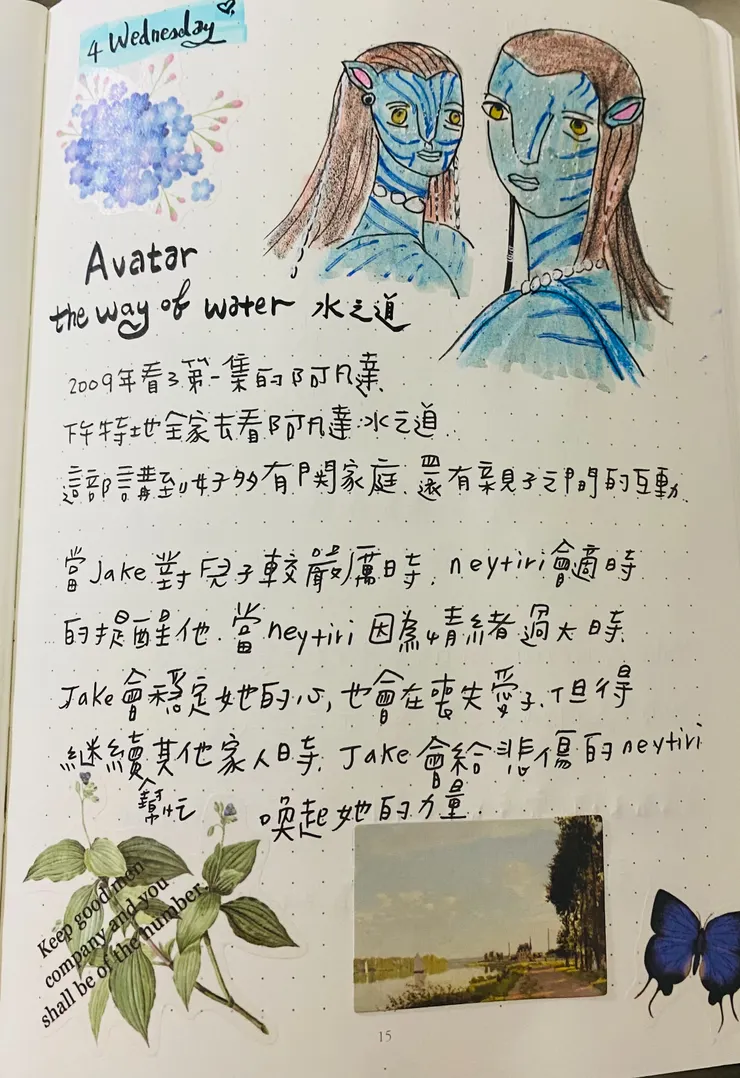 4 Wednesday
Avatar
the way of water 水之道
2009年看了第一集的阿凡達
下午特地全家去看阿凡達:水之道
這部講到好多有關家庭、還有親子之間的互動
當Jake對兒子較嚴厲時, neytiri會適時
的提醒他.當neytiri因為情緒過大時、
Jake會穩定她的心,也會在喪失愛子.但得
繼續其他家人時. Jake會給悲傷的neytiri
幫忙 喚起她的力量.
Keep good men
company and you
shall be of the number.
15